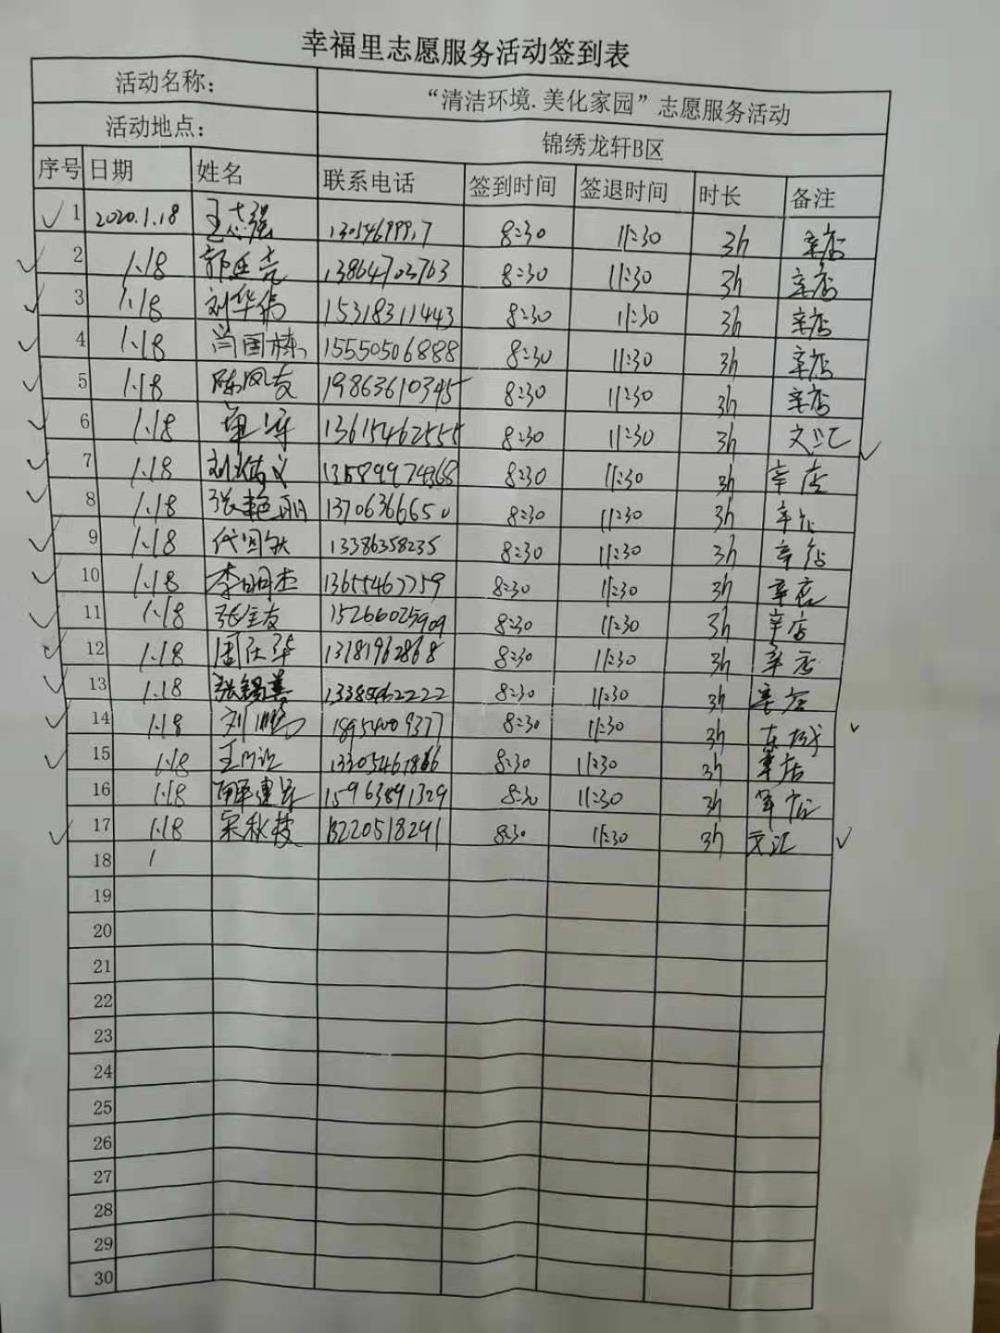 幸福里志愿服务活动签到表
活动名称： “清洁环境.美化家园”志愿服务活动
活动地点： 锦绣龙轩B区
序号 日期 姓名 联系电话 签到时间 签退时间 时长 备注
1 2020.1.18 王志强 8:30 11:30 3h 辛店
2 1.18 郭延亮 13864703763 8:30 11:30 3h 辛店
3 1.18 刘华伟 15318311443 8:30 11:30 3h 辛店
4 1.18 尚国栋 15550506888 8:30 11:30 3h 辛店
5 1.18 陈凤友 19863610345 8:30 11:30 3h 辛店
6 1.18 13615462555 8:30 11:30 3h 文汇
7 1.18 8:30 11:30 3h 辛店
8 1.18 张艳丽 13706366650 8:30 11:30 3h 辛店
9 1.18 13386358235 8:30 11:30 3h 辛店
10 1.18 李明杰 13655467759 8:30 11:30 3h 辛店
11 1.18 张金友 15266025909 8:30 11:30 3h 辛店
12 1.18 周庆华 13181962868 8:30 11:30 3h 辛店
13 1.18 张锡善 8:30 11:30 3h 辛店
14 1.18 刘鹏 18954009377 8:30 11:30 3h 东城
15 1.18 8:30 11:30 3h 辛店
16 1.18 15963891329 8:30 11:30 3h 辛店
17 1.18 宋秋枝 8:30 11:30 3h 文汇
18
19
20
21
22
23
24
25
26
27
28
29
30